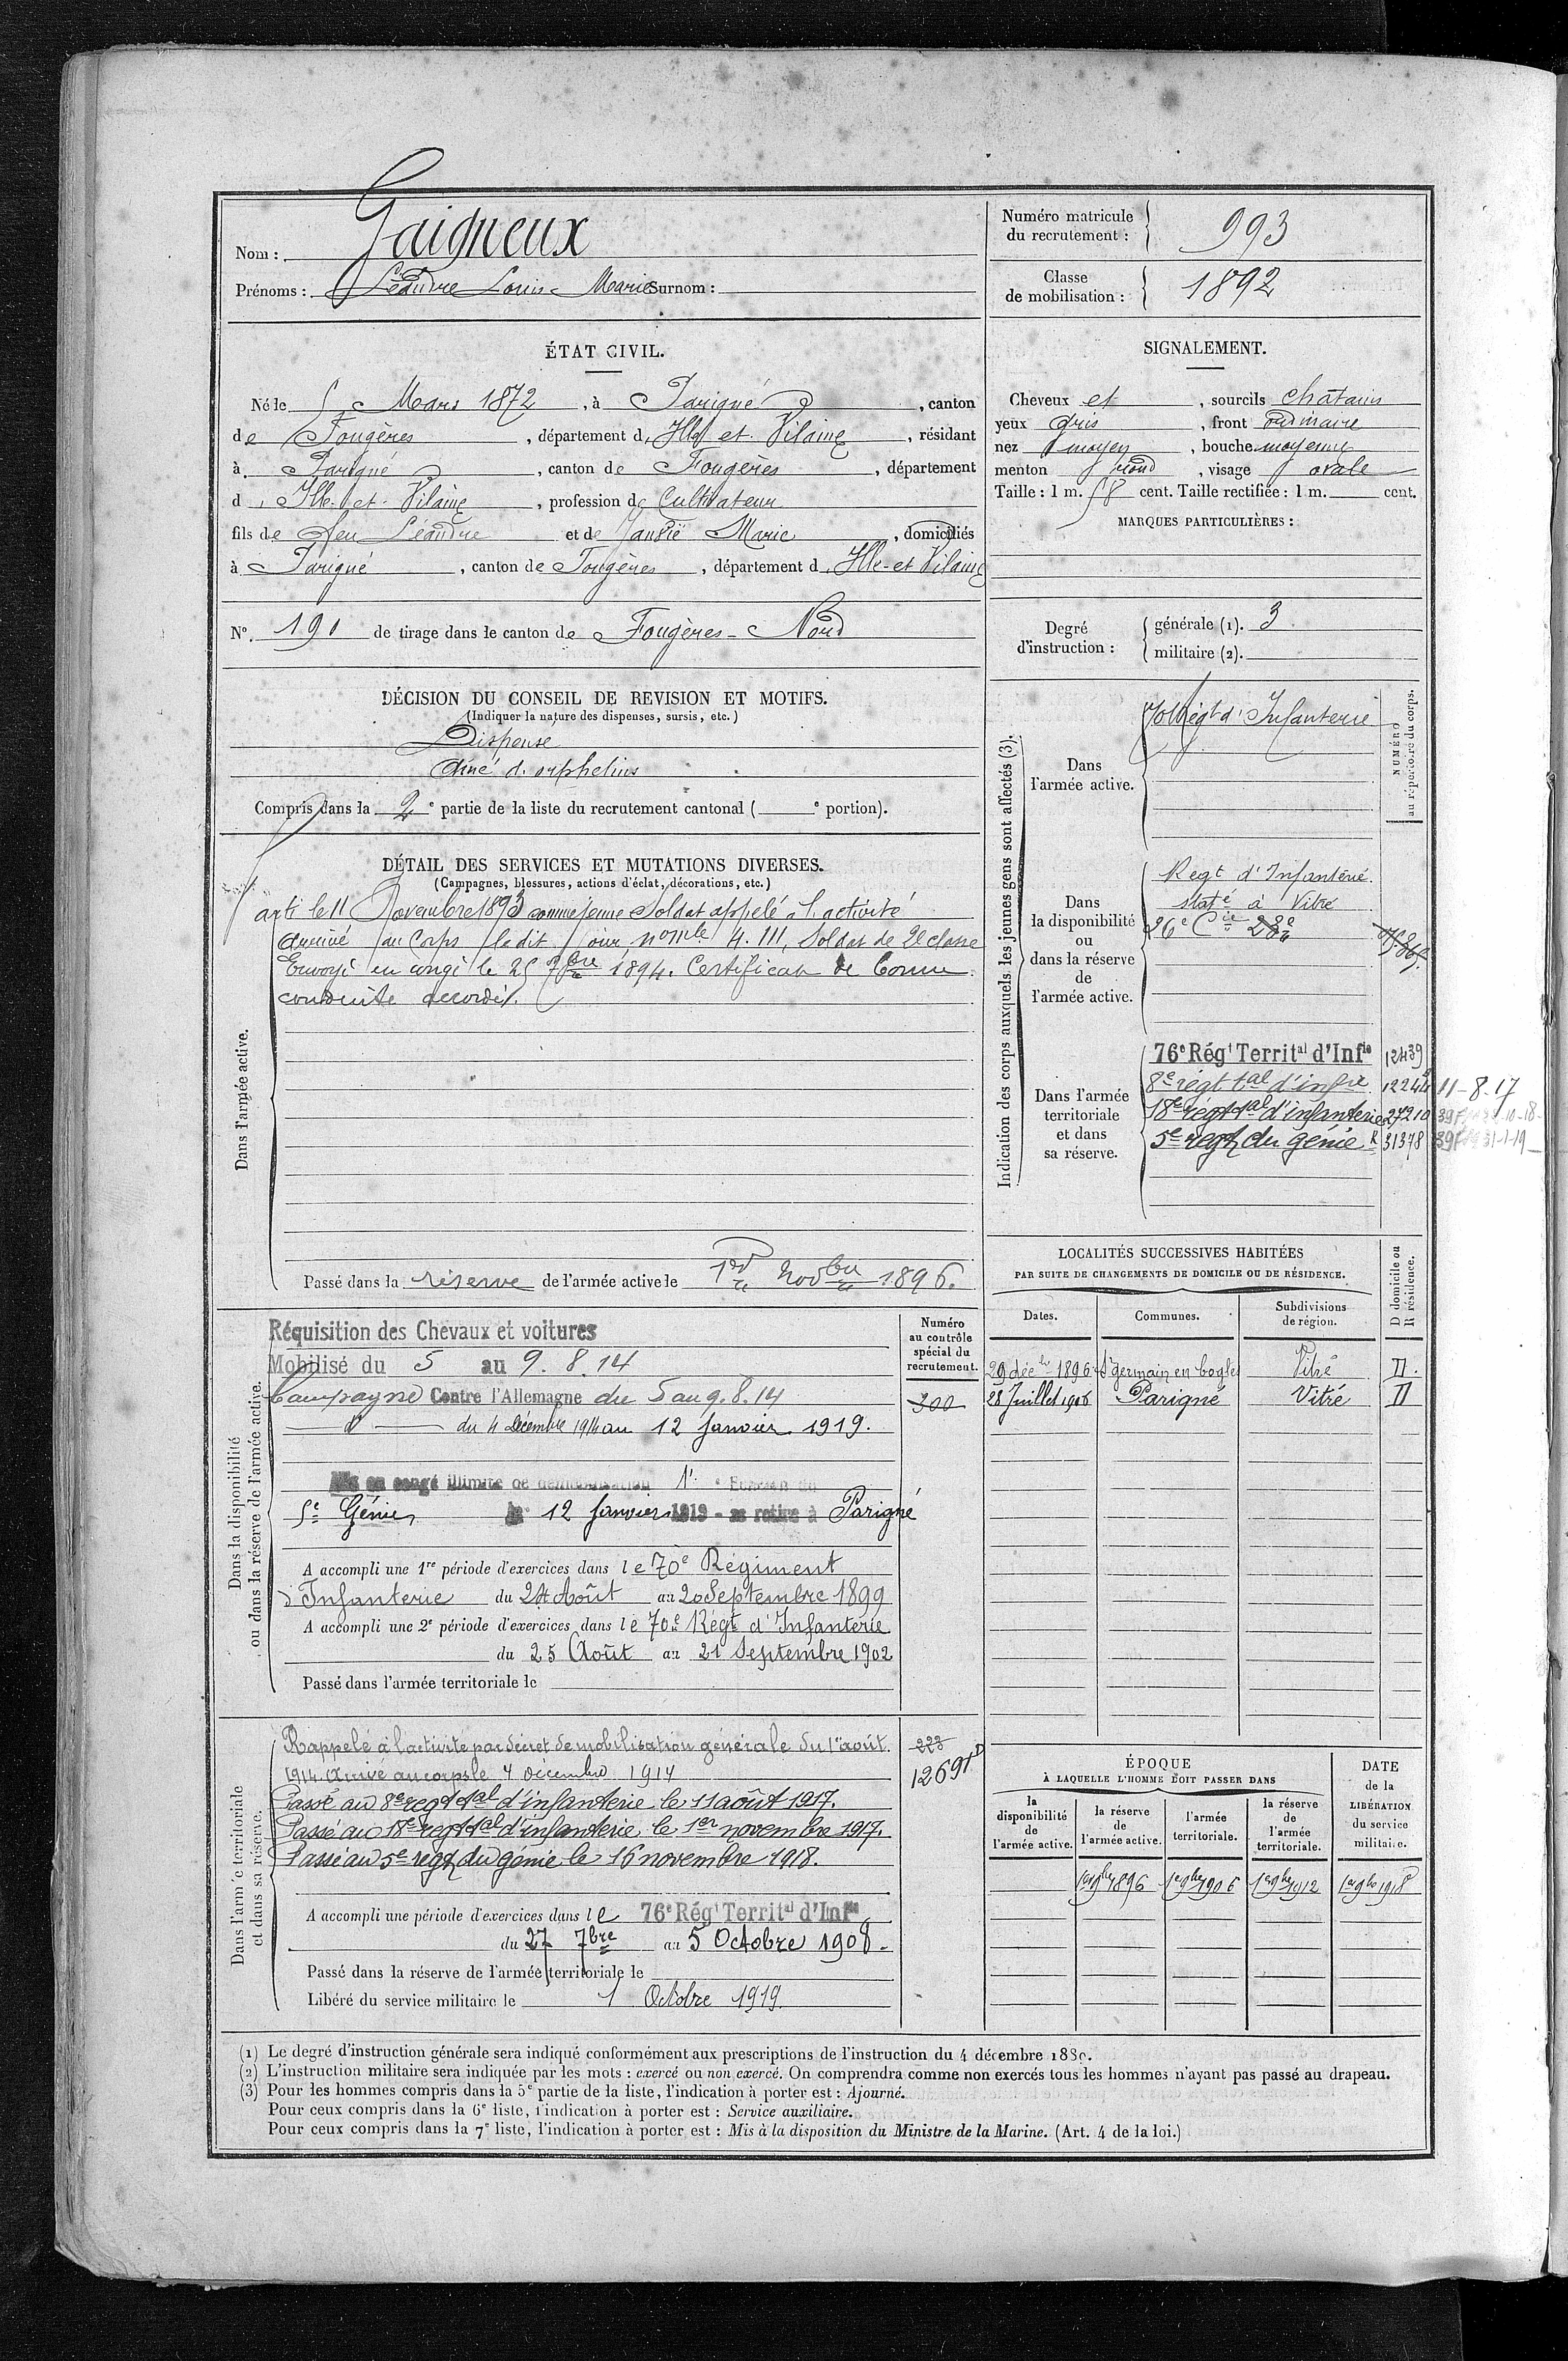 Nom : Gaigneux
Prénoms : Léandre Louis Marie Surnom :
Numéro matricule du recrutement : 993
Classe de mobilisation : 1892
ÉTAT CIVIL.
Né le 5 Mars 1872, à Parigné, canton
de Fougères, département d'Ille et Vilaine, résidant
à Parigné, canton de Fougères, département
d'Ille-et-Vilaine, profession de Cultivateur
fils de feu Léandre et de Marie, domiciliés
à Parigné, canton de Fougères, département d'Ille-et-Vilaine
N° 190 de tirage dans le canton de Fougères-Nord
SIGNALEMENT.
Cheveux et, sourcils chatains
yeux gris, front ordinaire
nez moyen, bouche moyenne
menton rond, visage ovale
Taille : 1 m. 58 cent. Taille rectifiée : 1 m. cent.
MARQUES PARTICULIÈRES :
Degré d'instruction :
générale (1). 3
militaire (2).
DÉCISION DU CONSEIL DE REVISION ET MOTIFS.
(Indiquer la nature des dispenses, sursis, etc.)
Dispensé
Ainé d'orphelins
Compris dans la 2e partie de la liste du recrutement cantonal ( e portion).
DÉTAIL DES SERVICES ET MUTATIONS DIVERSES.
(Campagnes, blessures, actions d'éclat, décorations, etc.)
Dans l'armée active.
Parti le 11 Novembre 1893 comme jeune Soldat appelé à l'activité
Arrivé au Corps le dit jour, n° mle 4.111, Soldat de 2e classe
Envoyé en congé le 25 7bre 1894. Certificat de bonne
conduite accordé.
Passé dans la réserve de l'armée active le 1er Novbre 1896.
Indication des corps auxquels les jeunes gens sont affectés (3).
NUMÉRO au répertoire du corps.
Dans l'armée active.
70e Régt d'Infanterie
Dans la disponibilité ou dans la réserve de l'armée active.
Régt d'Infanterie
staté à Vitré
26e Cie 28e
Dans l'armée territoriale et dans sa réserve.
76e Régt Territal d'Infie 12439
8e régt tal d'infie 12244 11-8-17
18e régt tal d'infanterie 27210
5e régt du génie R 31378 31-1-19
LOCALITÉS SUCCESSIVES HABITÉES
PAR SUITE DE CHANGEMENTS DE DOMICILE OU DE RÉSIDENCE.
Dates. Communes. Subdivisions de région. D domicile ou R résidence.
29 décbre 1896 St germain en Cogles Vitré D.
28 Juillet 1906 Parigné Vitré D
Dans la disponibilité ou dans la réserve de l'armée active.
Numéro au contrôle spécial du recrutement.
300
Réquisition des Chevaux et voitures
Mobilisé du 5 au 9.8.14
Campagne Contre l'Allemagne du 5 au 9.8.14
— d° — du 4 Décembre 1914 au 12 Janvier 1919.
Mis en congé illimité de démobilisation 1r Echelon du
5e Génie le 12 Janvier 1919 - se retire à Parigné
A accompli une 1re période d'exercices dans le 70e Régiment
d'Infanterie du 24 Août au 20 Septembre 1899
A accompli une 2e période d'exercices dans le 70e Régt d'Infanterie
du 25 Août au 21 Septembre 1902
Passé dans l'armée territoriale le
Dans l'armée territoriale et dans sa réserve.
Rappelé à l'activité par décret de mobilisation générale du 1er août
1914. Arrivé au corps le 4 décembre 1914
Passé au 8e régt tal d'infanterie le 11 août 1917.
Passé au 18e régt tal d'infanterie le 1er novembre 1917.
Passé au 5e régt du génie le 16 novembre 1918.
223
12691
A accompli une période d'exercices dans le 76e Régt Territal d'Infie
du 27 7bre au 5 Octobre 1908.
Passé dans la réserve de l'armée territoriale le
Libéré du service militaire le 1 Octobre 1919
ÉPOQUE
À LAQUELLE L'HOMME DOIT PASSER DANS
la disponibilité de l'armée active. la réserve de l'armée active. l'armée territoriale. la réserve de l'armée territoriale.
DATE de la LIBÉRATION du service militaire.
1er 9bre 1896 1er 9bre 1906 1er 9bre 1912 1er 9bre 1918
(1) Le degré d'instruction générale sera indiqué conformément aux prescriptions de l'instruction du 4 décembre 1889.
(2) L'instruction militaire sera indiquée par les mots : exercé ou non exercé. On comprendra comme non exercés tous les hommes n'ayant pas passé au drapeau.
(3) Pour les hommes compris dans la 5e partie de la liste, l'indication à porter est : Ajourné.
Pour ceux compris dans la 6e liste, l'indication à porter est : Service auxiliaire.
Pour ceux compris dans la 7e liste, l'indication à porter est : Mis à la disposition du Ministre de la Marine. (Art. 4 de la loi.)